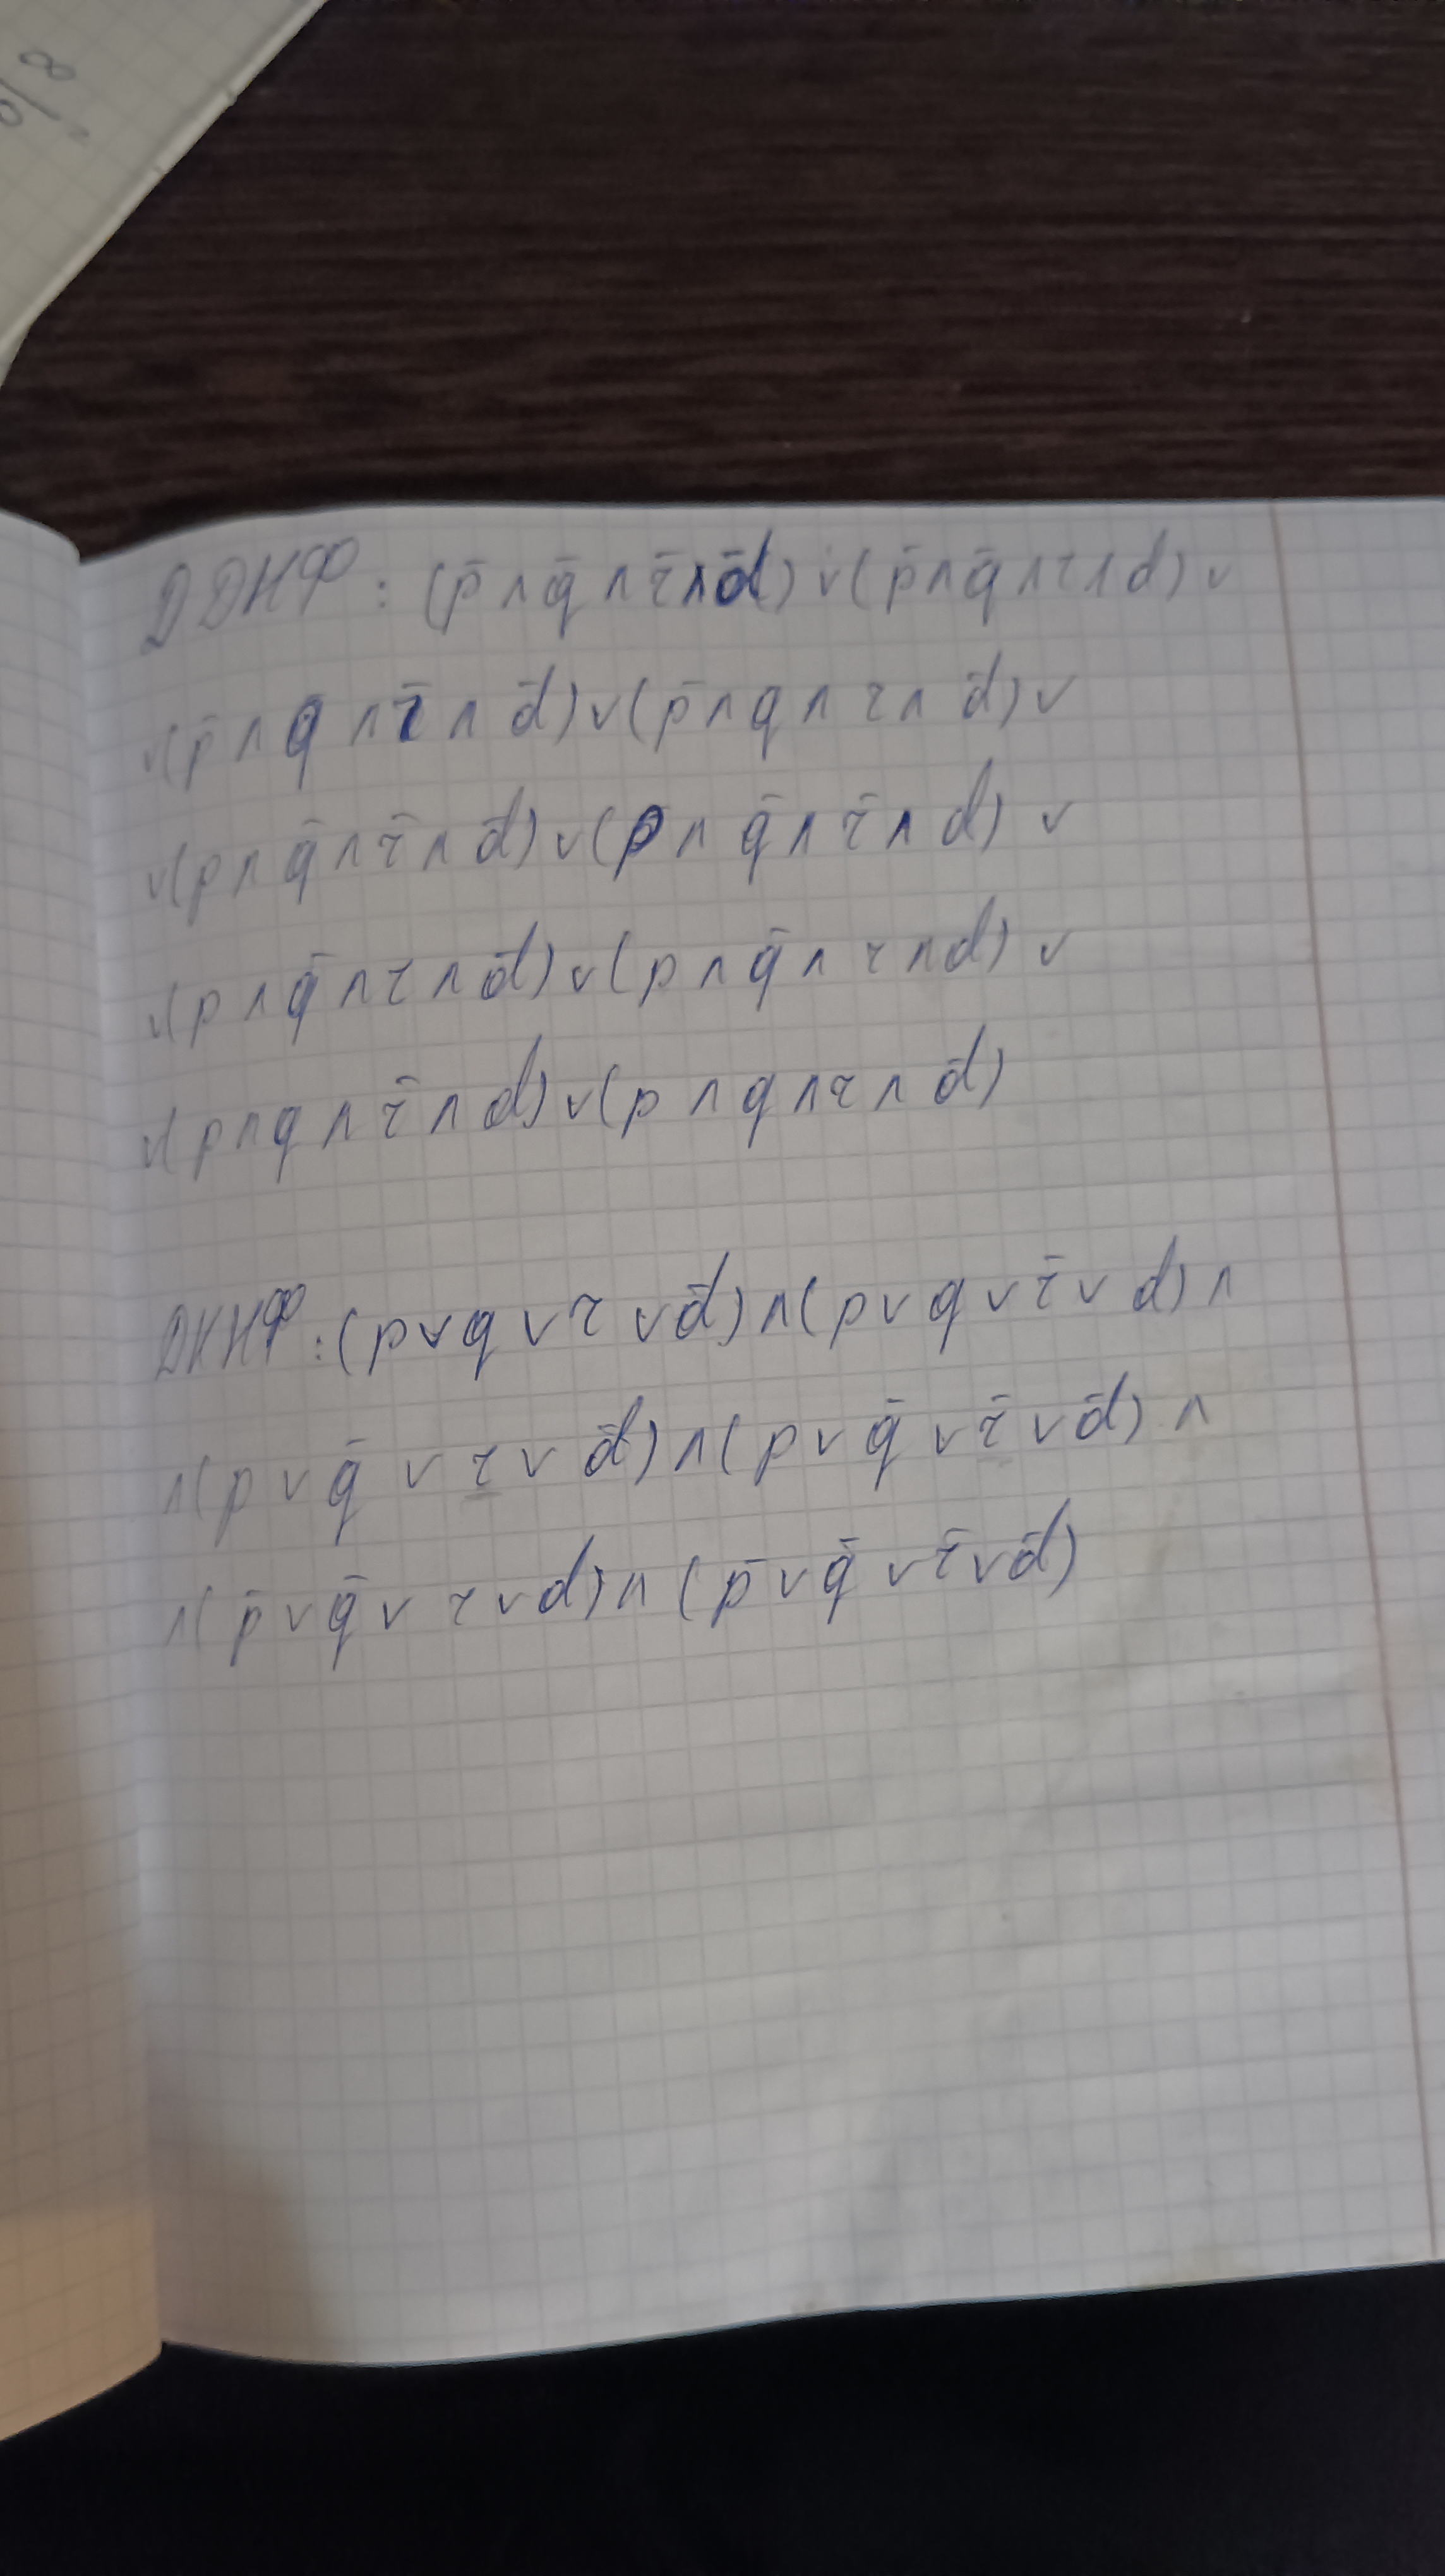 ДДНФ: (p̄ ∧ q̄ ∧ r̄ ∧ d̄) ∨ (p̄ ∧ q̄ ∧ r ∧ d) ∨
∨(p̄ ∧ q ∧ r̄ ∧ d̄) ∨ (p̄ ∧ q ∧ r ∧ d̄) ∨
∨(p ∧ q̄ ∧ r̄ ∧ d̄) ∨ (p ∧ q̄ ∧ r̄ ∧ d) ∨
∨(p ∧ q̄ ∧ r ∧ d̄) ∨ (p ∧ q̄ ∧ r ∧ d) ∨
∨(p ∧ q ∧ r̄ ∧ d) ∨ (p ∧ q ∧ r ∧ d̄)
ДКНФ: (p ∨ q ∨ r ∨ d̄) ∧ (p ∨ q ∨ r̄ ∨ d) ∧
∧(p ∨ q̄ ∨ r ∨ d̄) ∧ (p ∨ q̄ ∨ r̄ ∨ d̄) ∧
∧(p̄ ∨ q̄ ∨ r ∨ d) ∧ (p̄ ∨ q̄ ∨ r̄ ∨ d̄)